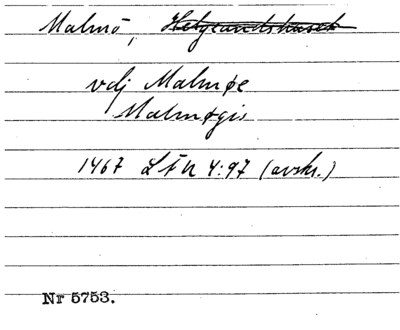 Malmö, Helgeandshuset
vdj Malmøe
Malmøgis
1467 LÅU 4:97 (avskr.)
Nr 5753.